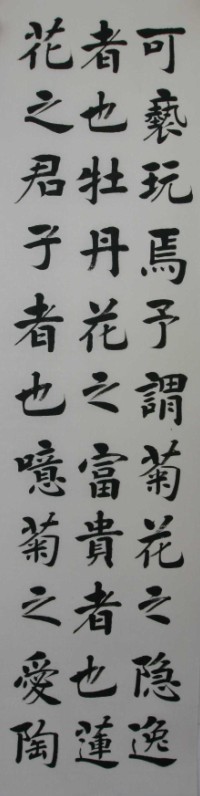 可褻玩焉予謂菊花之隐逸
者也牡丹花之富貴者也蓮
花之君子者也噫菊之愛陶